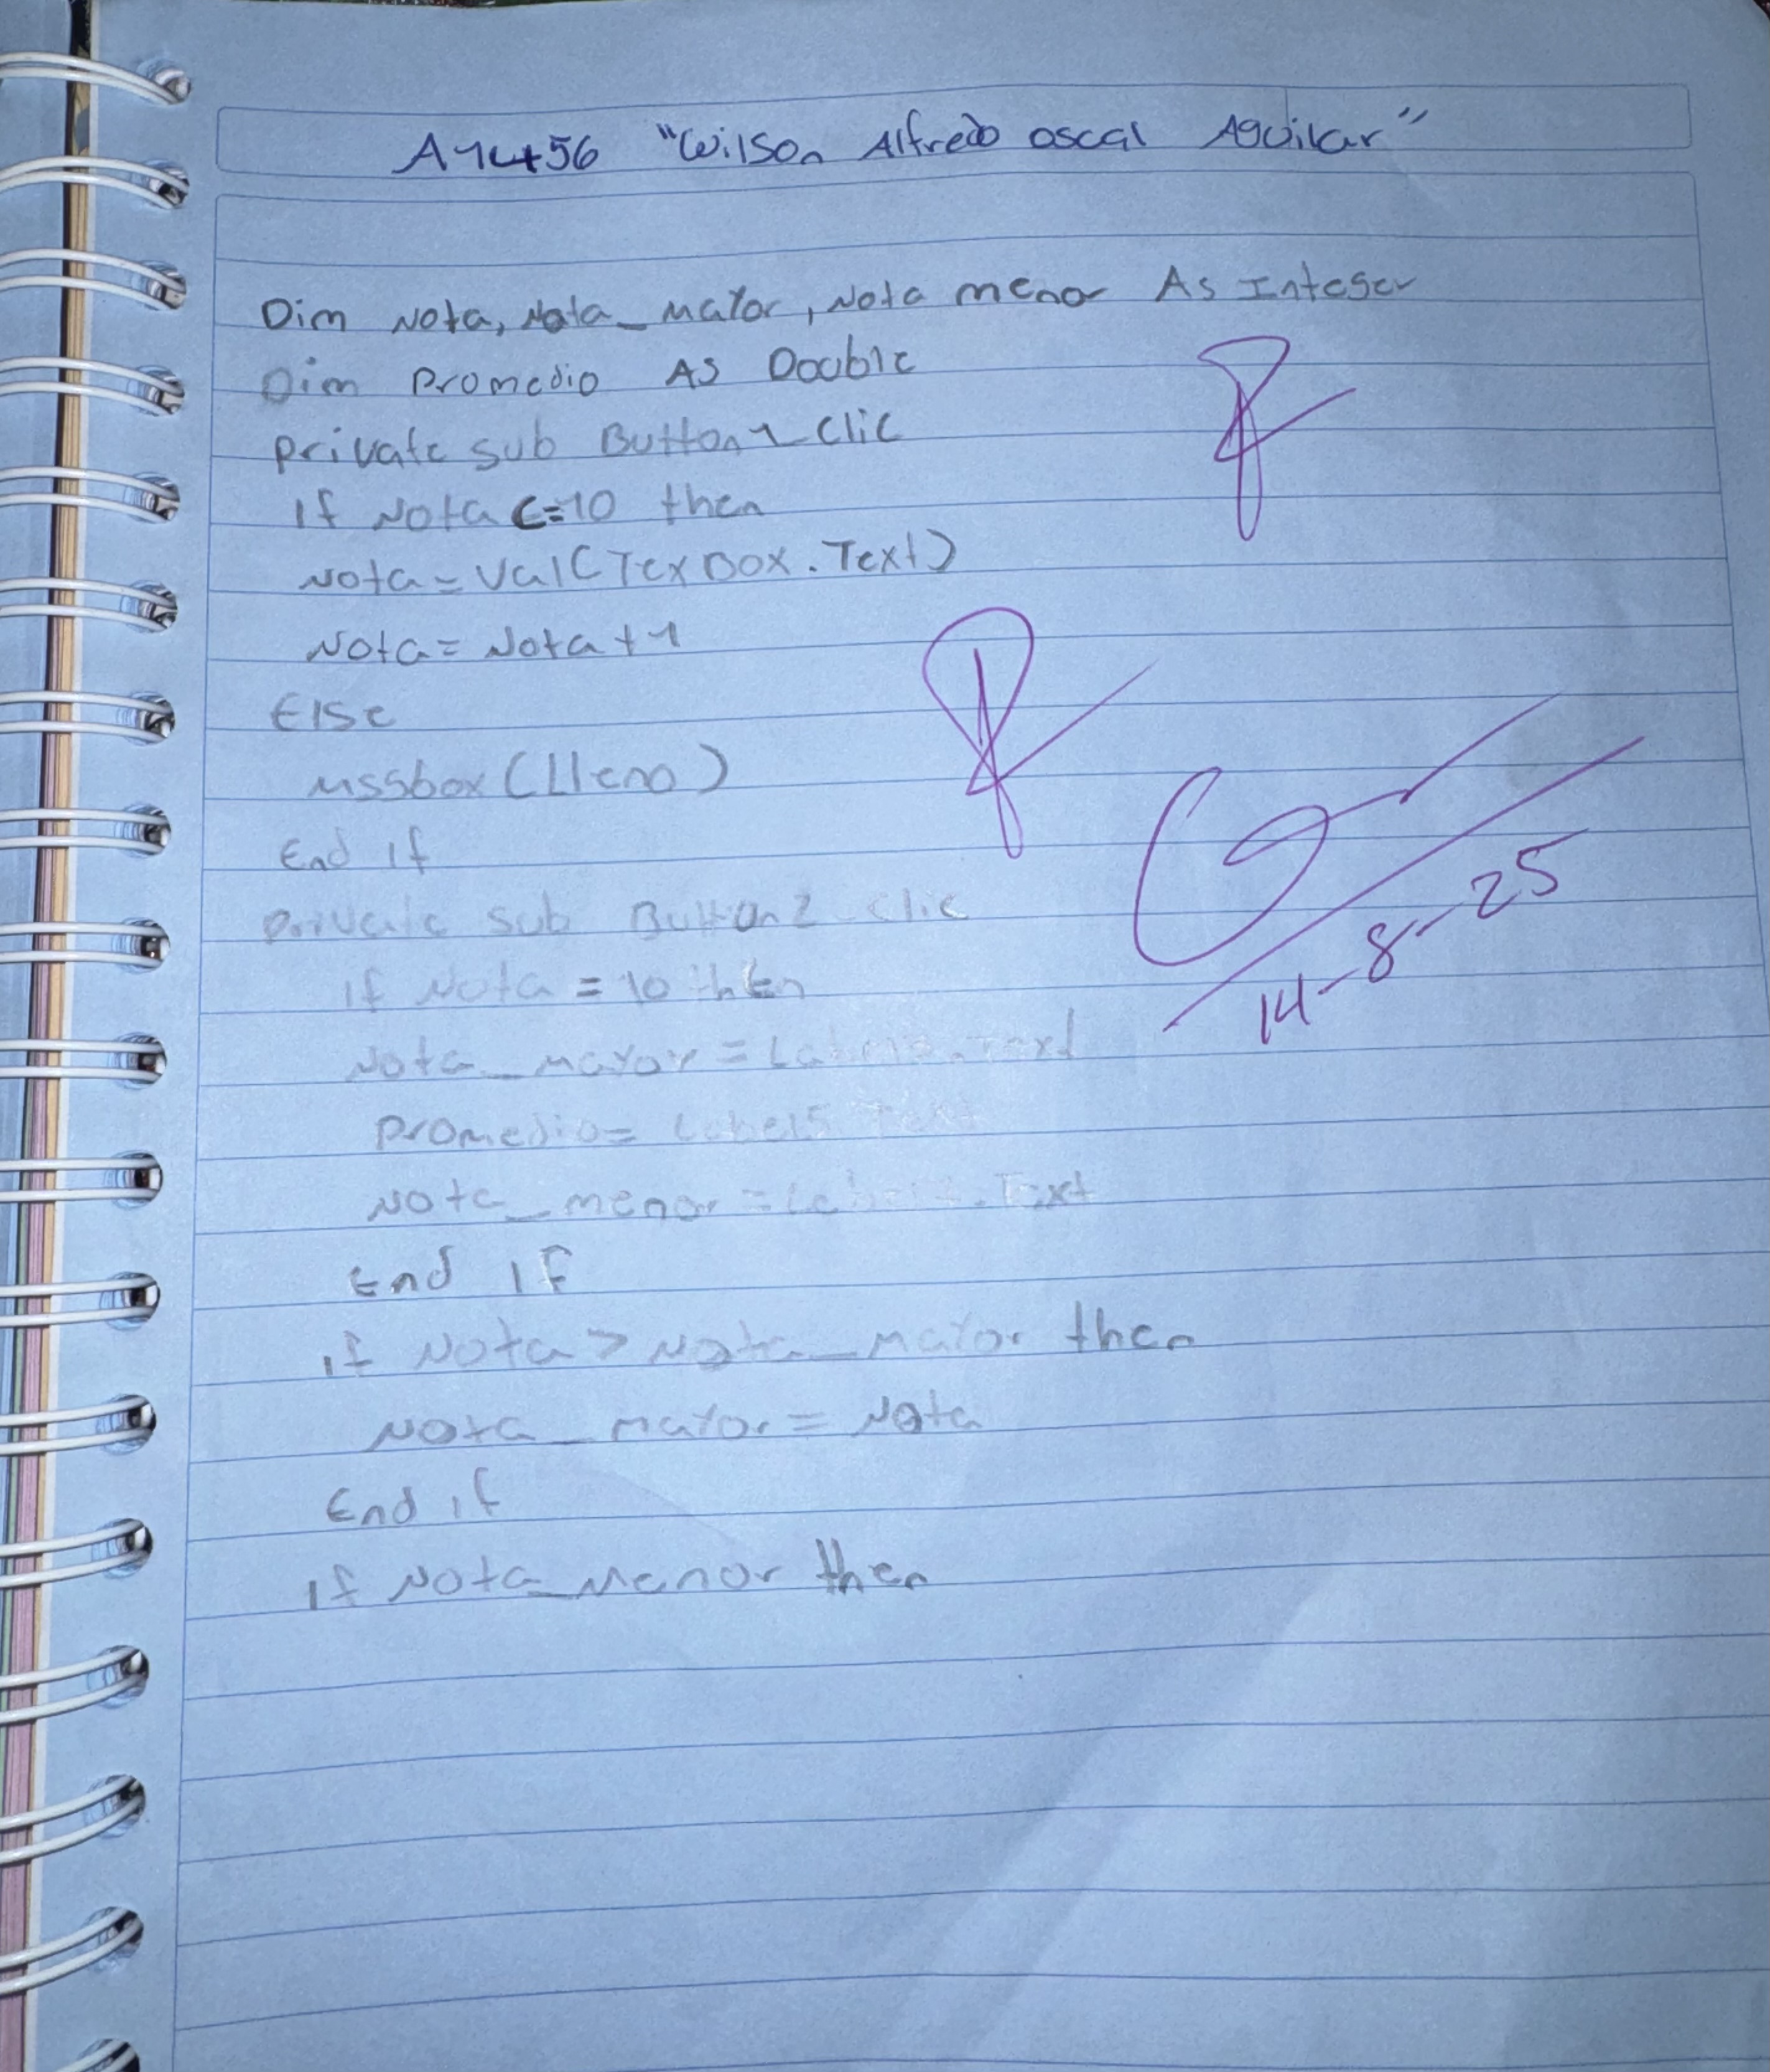 A14456 "Wilson Alfredo oscal Aguilar"
Dim Nota, Nota_Mayor, Nota menor As Integer
Dim Promedio As Double
private sub Button1_Clic
If Nota <=10 then
Nota=Val(TexBox.Text)
Nota= Nota+1
Else
Msgbox(Lleno)
End If
private sub Button2_clic
if Nota = 10 then
Nota_mayor = .Text
Promedio= Label5.Text
Nota_menor = .Text
End IF
if Nota > Nota_mayor then
Nota_mayor = Nota
End if
if Nota_Menor then
14-8-25